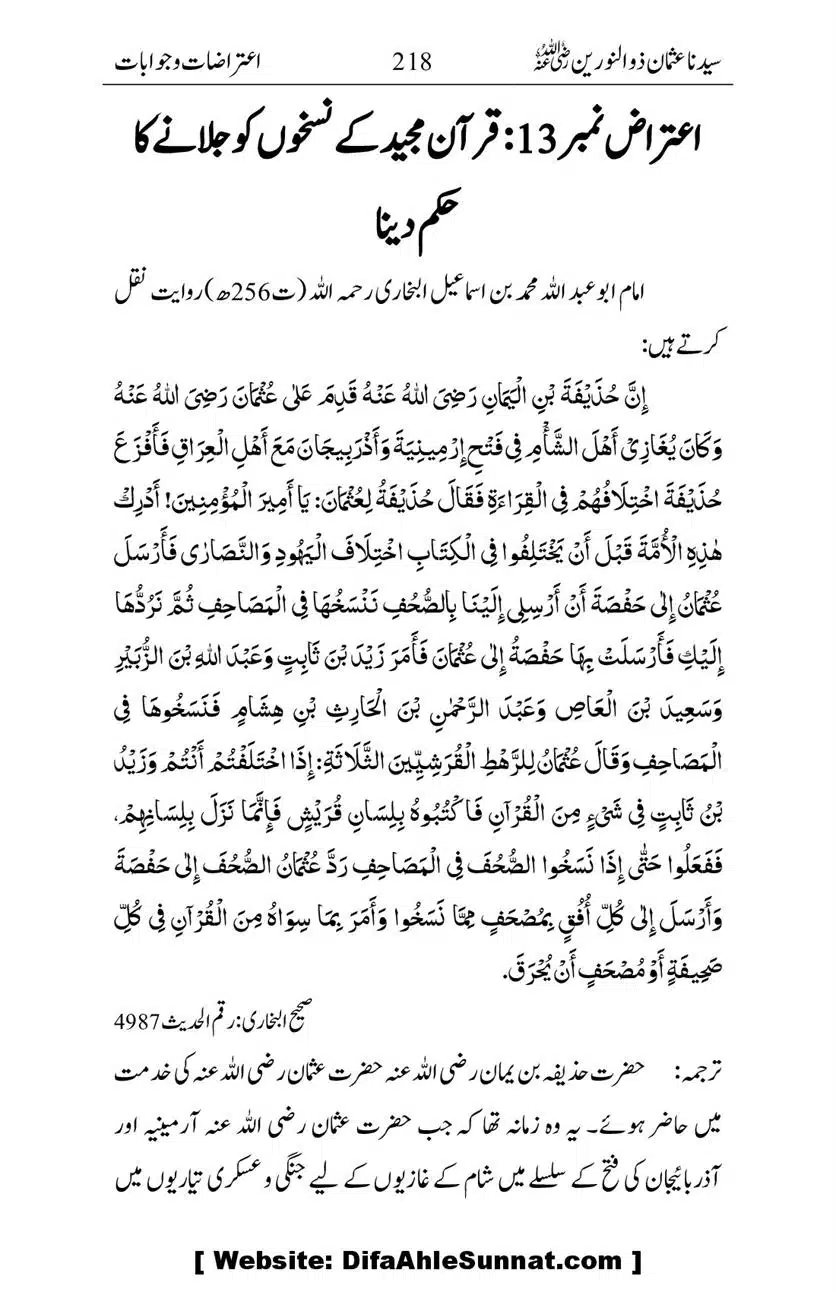 سیدنا عثمان ذوالنورین رضی اللہ عنہ 218 اعتراضات و جوابات
اعتراض نمبر 13: قرآن مجید کے نسخوں کو جلانے کا
حکم دینا
امام ابو عبد اللہ محمد بن اسماعیل البخاری رحمہ اللہ (ت256ھ) روایت نقل
کرتے ہیں:
إِنَّ حُذَيْفَةَ بْنِ الْيَمَانِ رَضِيَ اللهُ عَنْهُ قَدِمَ عَلٰى عُثْمَانَ رَضِيَ اللهُ عَنْهُ
وَكَانَ يُغَازِيْ أَهْلَ الشَّأْمِ فِي فَتْحِ إِرْمِينِيَةَ وَأَذْرَبِيجَانَ مَعَ أَهْلِ الْعِرَاقِ فَأَفْزَعَ
حُذَيْفَةَ اخْتِلَافُهُمْ فِي الْقِرَاءَةِ فَقَالَ حُذَيْفَةُ لِعُثْمَانَ: يَا أَمِيرَ الْمُؤْمِنِينَ! أَدْرِكْ
هٰذِهِ الْأُمَّةَ قَبْلَ أَنْ يَخْتَلِفُوا فِي الْكِتَابِ اخْتِلَافَ الْيَهُودِ وَالنَّصَارٰى فَأَرْسَلَ
عُثْمَانُ إِلٰى حَفْصَةَ أَنْ أَرْسِلِي إِلَيْنَا بِالصُّحُفِ نَنْسَخُهَا فِي الْمَصَاحِفِ ثُمَّ نَرُدُّهَا
إِلَيْكِ فَأَرْسَلَتْ بِهَا حَفْصَةُ إِلٰى عُثْمَانَ فَأَمَرَ زَيْدَ بْنَ ثَابِتٍ وَعَبْدَ اللهِ بْنَ الزُّبَيْرِ
وَسَعِيدَ بْنَ الْعَاصِ وَعَبْدَ الرَّحْمٰنِ بْنَ الْحَارِثِ بْنِ هِشَامٍ فَنَسَخُوهَا فِي
الْمَصَاحِفِ وَقَالَ عُثْمَانُ لِلرَّهْطِ الْقُرَشِيِّينَ الثَّلَاثَةِ: إِذَا اخْتَلَفْتُمْ أَنْتُمْ وَزَيْدُ
بْنُ ثَابِتٍ فِي شَيْءٍ مِنَ الْقُرْآنِ فَاكْتُبُوهُ بِلِسَانِ قُرَيْشٍ فَإِنَّمَا نَزَلَ بِلِسَانِهِمْ،
فَفَعَلُوا حَتّٰى إِذَا نَسَخُوا الصُّحُفَ فِي الْمَصَاحِفِ رَدَّ عُثْمَانُ الصُّحُفَ إِلٰى حَفْصَةَ
وَأَرْسَلَ إِلٰى كُلِّ أُفُقٍ بِمُصْحَفٍ مِمَّا نَسَخُوا وَأَمَرَ بِمَا سِوَاهُ مِنَ الْقُرْآنِ فِي كُلِّ
صَحِيفَةٍ أَوْ مُصْحَفٍ أَنْ يُحْرَقَ.
صحیح البخاری: رقم الحدیث 4987
ترجمہ: حضرت حذیفہ بن یمان رضی اللہ عنہ حضرت عثمان رضی اللہ عنہ کی خدمت
میں حاضر ہوئے۔ یہ وہ زمانہ تھا کہ جب حضرت عثمان رضی اللہ عنہ آرمینیہ اور
آذربائیجان کی فتح کے سلسلے میں شام کے غازیوں کے لیے جنگی و عسکری تیاریوں میں
[ Website: DifaAhleSunnat.com ]